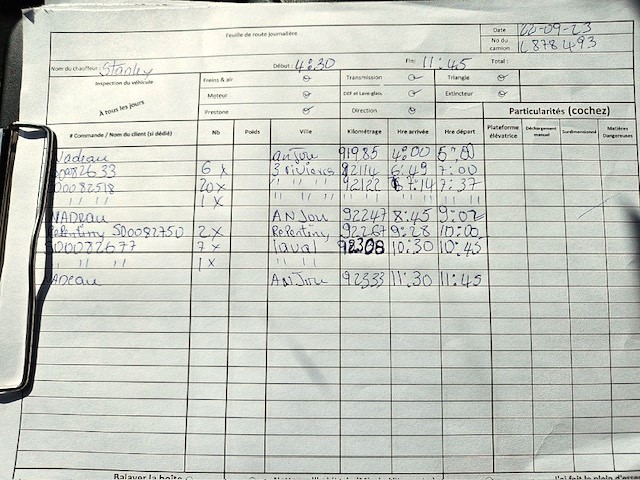 Feuille de route journalière
Date 20-09-23
No du camion L878493
Nom du chauffeur: Stanley Début: 4:30 Fin: 11:45 Total:
Inspection du véhicule Freins & air Transmission Triangle
À tous les jours Moteur DEF et Lave-glass Extincteur
Prestone Direction Particularités (cochez)
# Commande / Nom du client (si dédié) Nb Poids Ville Kilométrage Hre arrivée Hre départ Plateforme élévatrice Déchargement manuel Surdimensionné Matières Dangereuses
Nadeau anjou 91985 4:00 5:00
82633 6 x 3 rivières 92114 6:49 7:00
500082518 20x " " " " 92122 7:14 7:37
" " " 1 x " " " " " " " " "
NADEAU ANJOU 92247 8:45 9:02
Repentiny 500082750 2x Repentiny 92267 9:28 10:00
500082677 7x laval 92308 10:30 10:45
" " " 1x " " "
ADEAU ANJOU 92333 11:30 11:45
Balayer la boîte